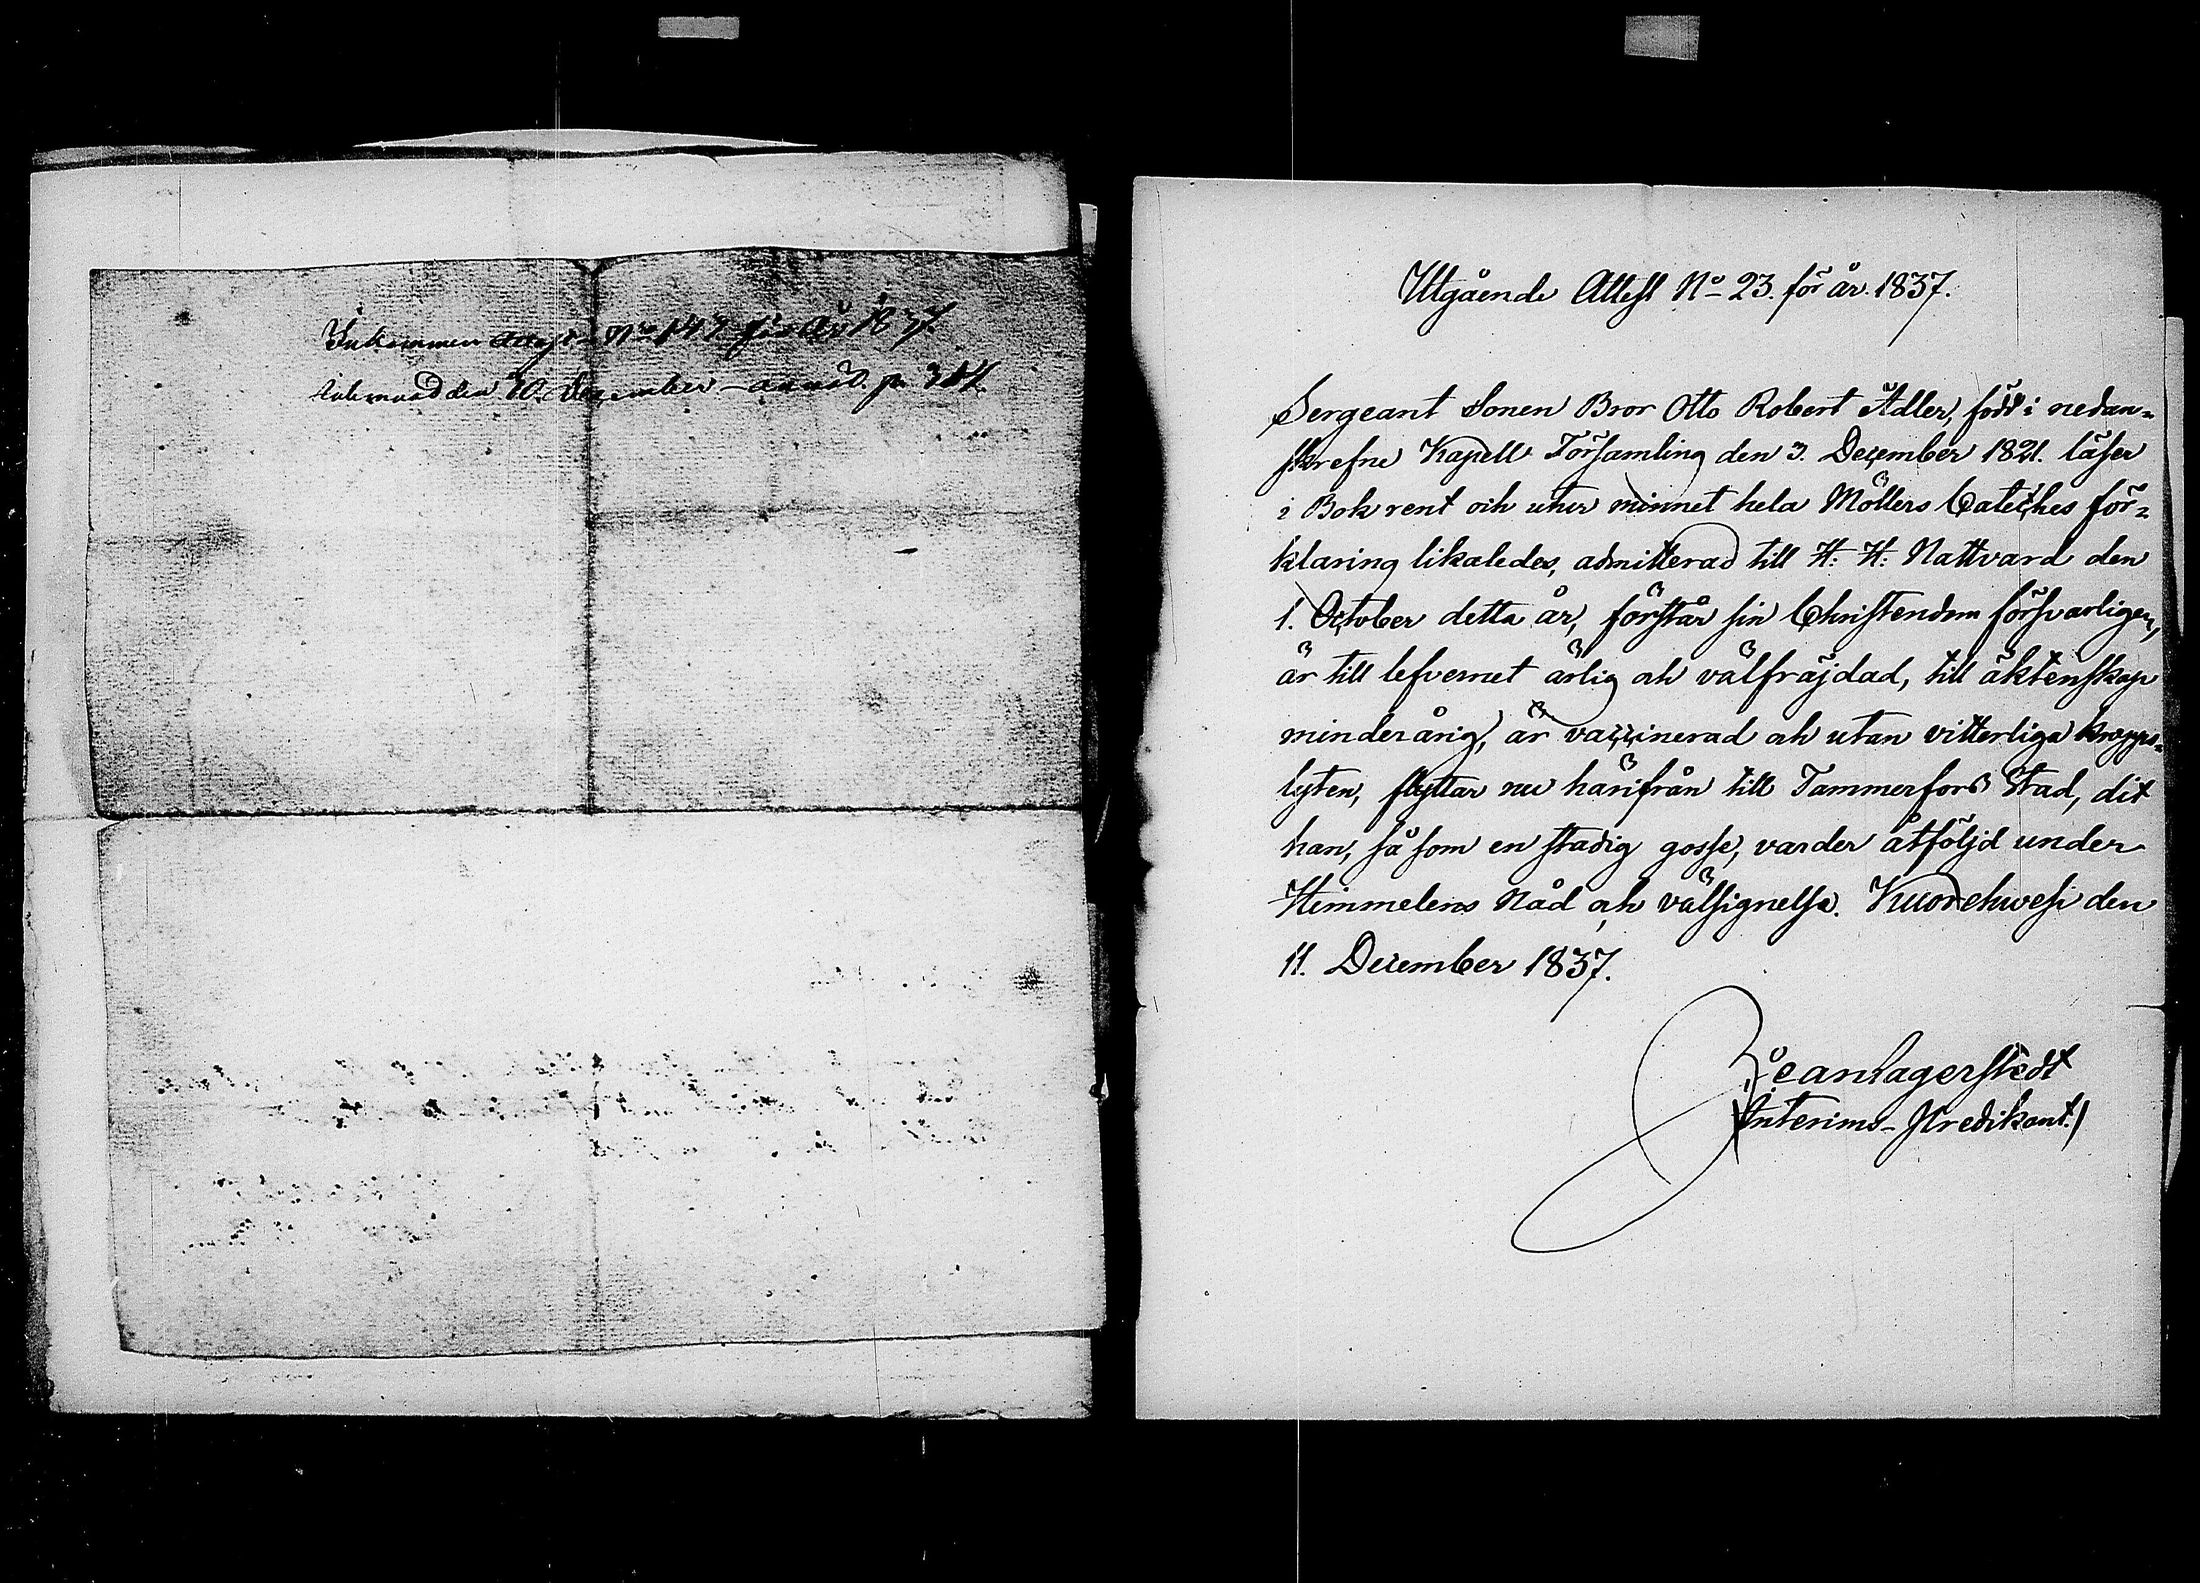 Inkommen Attest No 147 för År 1837.
den 30. December
Utgående Attest No 23. för år 1837.
Sergeant Sonen Bror Otto Robert Adler, född i nedan-
skrefne Kapell Församling den 3. December 1821. läser
i Bok rent och utur minnet hela Möllers Cateches för-
klaring likaledes, admitterad till H: H: Nattvard den
1. October detta år, förstår sin Christendom försvarligen,
är till lefvernet ärlig och välfräjdad, till äktenskap
minderårig, är vaccinerad och utan vitterliga kropps-
lyten, flyttar nu härifrån till Tammerfors Stad, dit
han, så som en stadig gosse, varder åtföljd under
Himmelens Nåd och välsignelse. Kuorehwesi den
11. December 1837.
Interims-Predikant.)